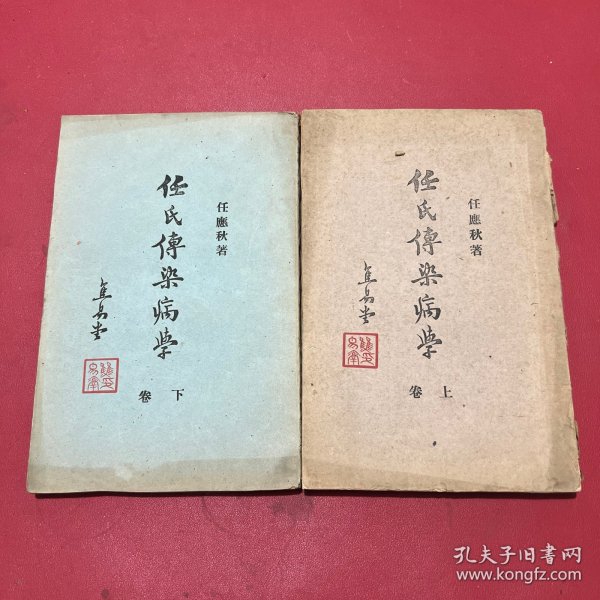 任應秋著
任氏傳染病學
焦易堂
下卷
任應秋著
任氏傳染病學
焦易堂
上卷
孔夫子旧书网
www.kongfz.com